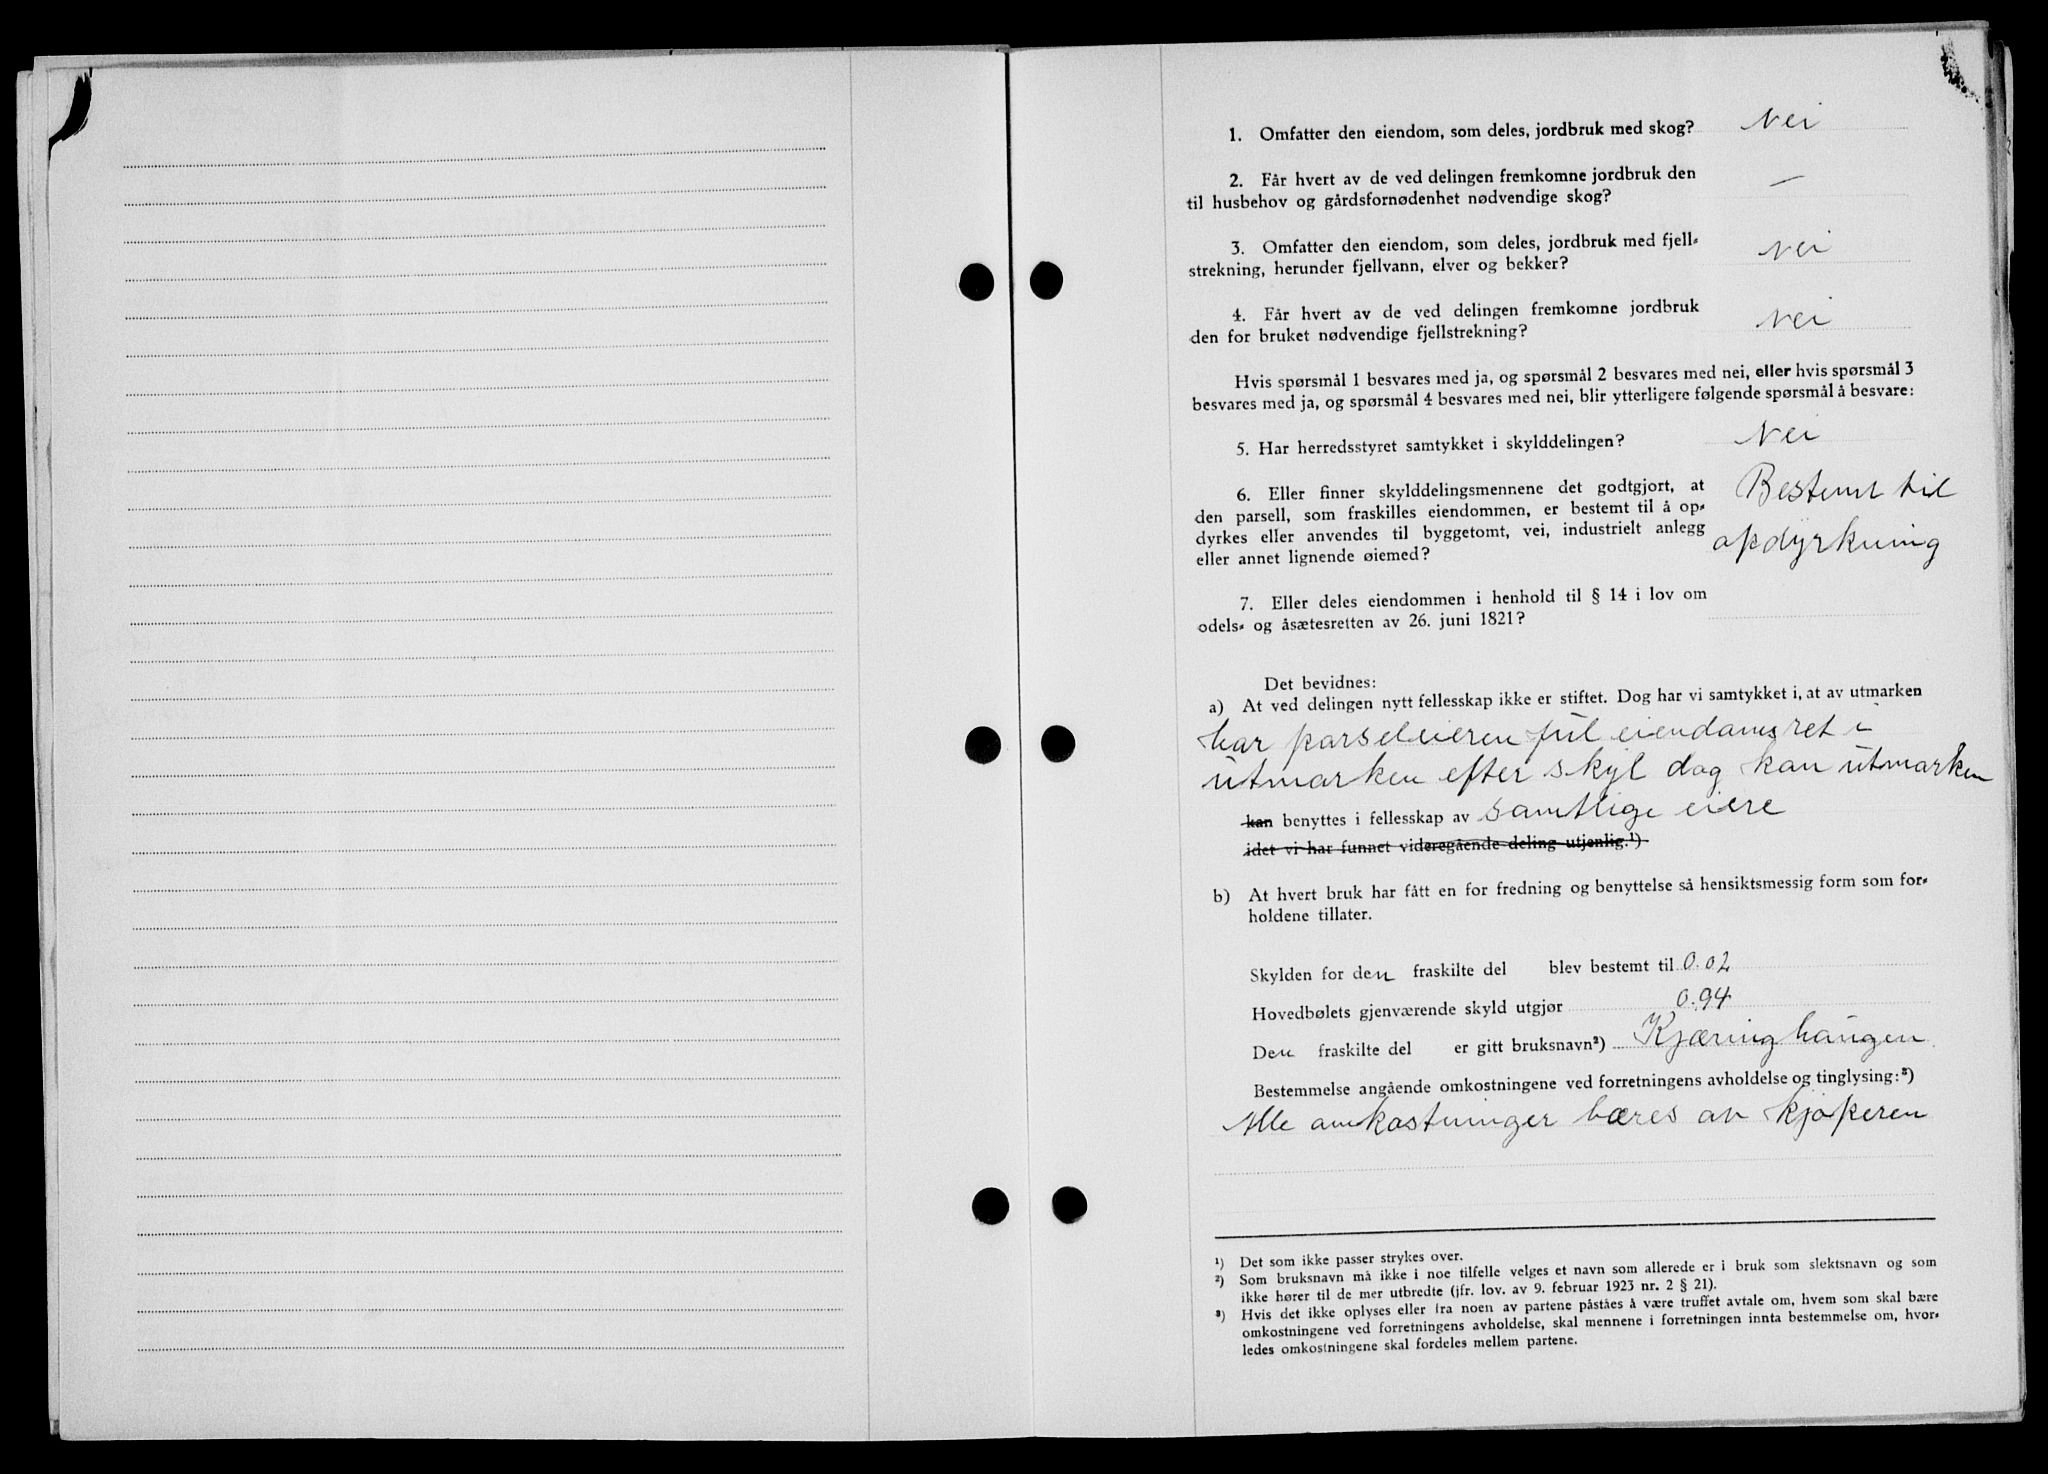 1. Omfatter den eiendom, som deles, jordbruk med skog? Nei
2. Får hvert av de ved delingen fremkomne jordbruk den
til husbehov og gårdsfornødenhet nødvendige skog? —
3. Omfatter den eiendom, som deles, jordbruk med fjell-
strekning, herunder fjellvann, elver og bekker? Nei
4. Får hvert av de ved delingen fremkomne jordbruk
den for bruket nødvendige fjellstrekning? Nei
Hvis spørsmål 1 besvares med ja, og spørsmål 2 besvares med nei, eller hvis spørsmål 3
besvares med ja, og spørsmål 4 besvares med nei, blir ytterligere følgende spørsmål å besvare:
5. Har herredsstyret samtykket i skylddelingen? Nei
6. Eller finner skylddelingsmennene det godtgjort, at
den parsell, som fraskilles eiendommen, er bestemt til å op-
dyrkes eller anvendes til byggetomt, vei, industrielt anlegg
eller annet lignende øiemed?
Bestemt til
opdyrkning
7. Eller deles eiendommen i henhold til § 14 i lov om
odels- og åsætesretten av 26. juni 1821?
Det bevidnes:
a) At ved delingen nytt fellesskap ikke er stiftet. Dog har vi samtykket i, at av utmarken
har parseleieren ful eiendomsret i
utmarken efter skyl dog kan utmarken
kan benyttes i fellesskap av samtlige eiere
idet vi har funnet videregående deling utjenlig.¹)
b) At hvert bruk har fått en for fredning og benyttelse så hensiktsmessig form som for-
holdene tillater.
Skylden for den fraskilte del blev bestemt til 0.02
Hovedbølets gjenværende skyld utgjør 0.94
Den fraskilte del er gitt bruksnavn²) Kjæringhaugen
Bestemmelse angående omkostningene ved forretningens avholdelse og tinglysing:³)
Alle omkostninger bæres av kjøperen
¹) Det som ikke passer strykes over.
²) Som bruksnavn må ikke i noe tilfelle velges et navn som allerede er i bruk som slektsnavn og som
ikke hører til de mer utbredte (jfr. lov. av 9. februar 1923 nr. 2 § 21).
³) Hvis det ikke oplyses eller fra noen av partene påståes å være truffet avtale om, hvem som skal bære
omkostningene ved forretningens avholdelse, skal mennene i forretningen innta bestemmelse om, hvor-
ledes omkostningene skal fordeles mellem partene.